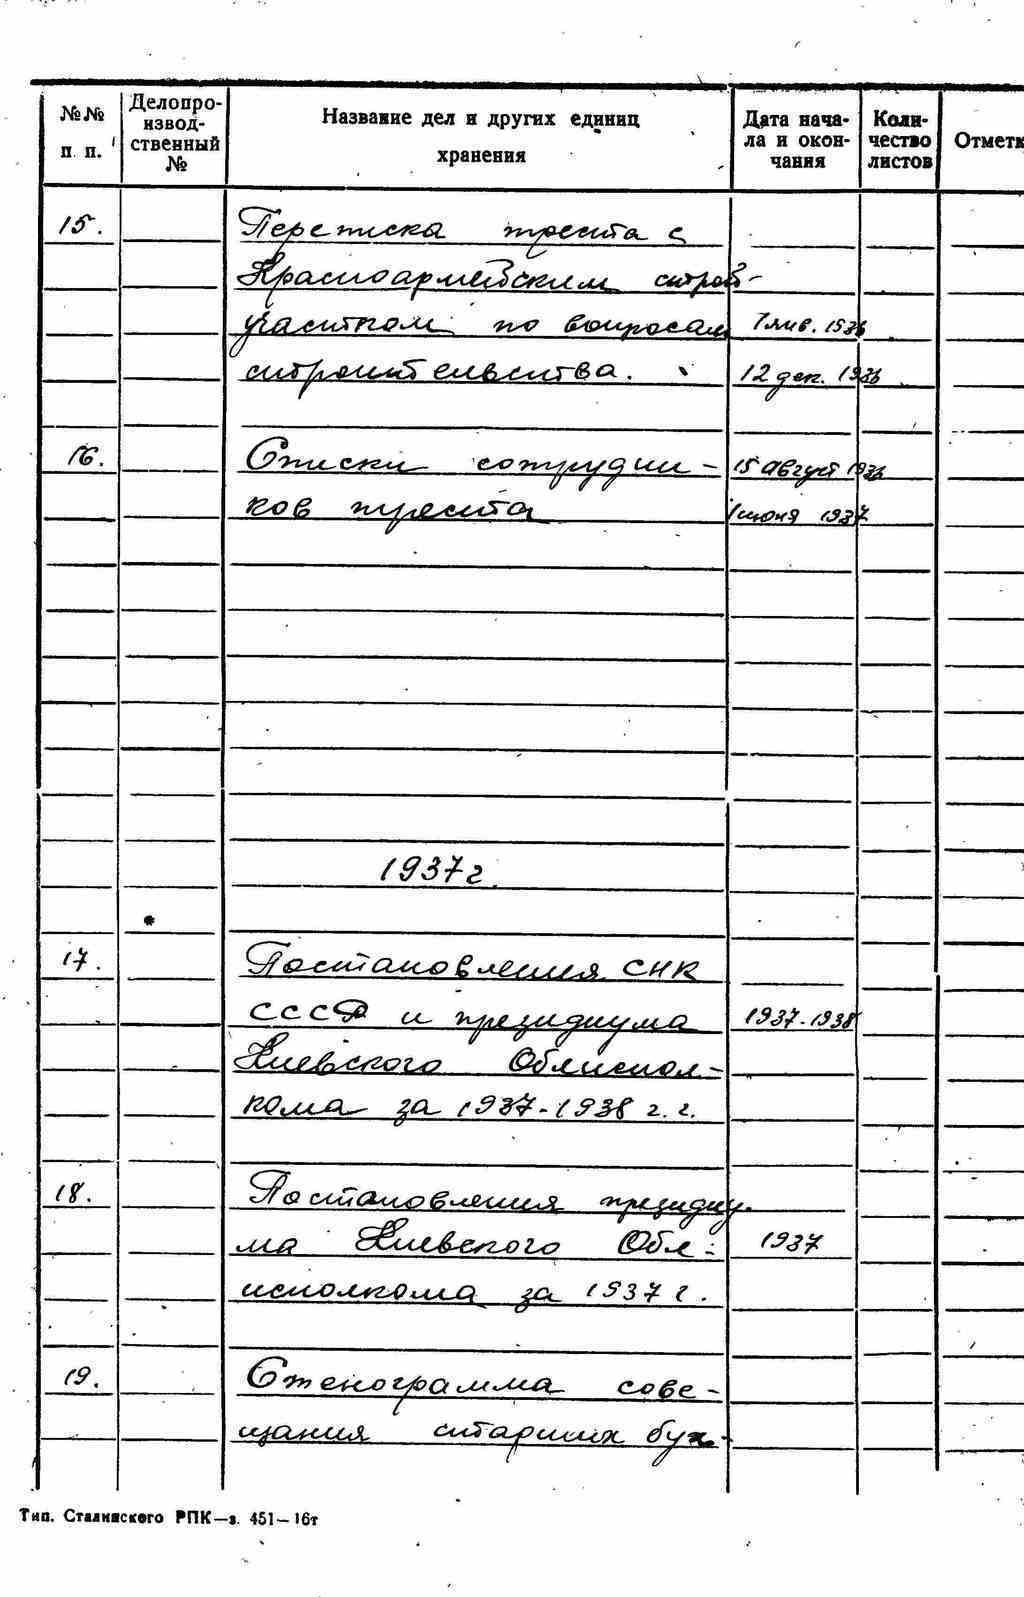 №№ п. п. Делопроизводственный № Название дел и других единиц хранения Дата начала и окончания Количество листов Отметк
15. Переписка треста с
Красноармейским строй-
участком по вопросам 7 янв. 1936
строительства. 12 дек. 1936
16. Списки сотрудни- 15 август 1936
ков треста 1 июня 1937
1937 г.
17. Постановления СНК
СССР и президиума 1937-1938
Киевского Облиспол-
кома за 1937-1938 г.г.
18. Постановления президиу-
ма Киевского Обл- 1937
исполкома за 1937 г.
19. Стенограмма сове-
щания старших бух-
Тип. Сталинского РПК—з. 451—16т